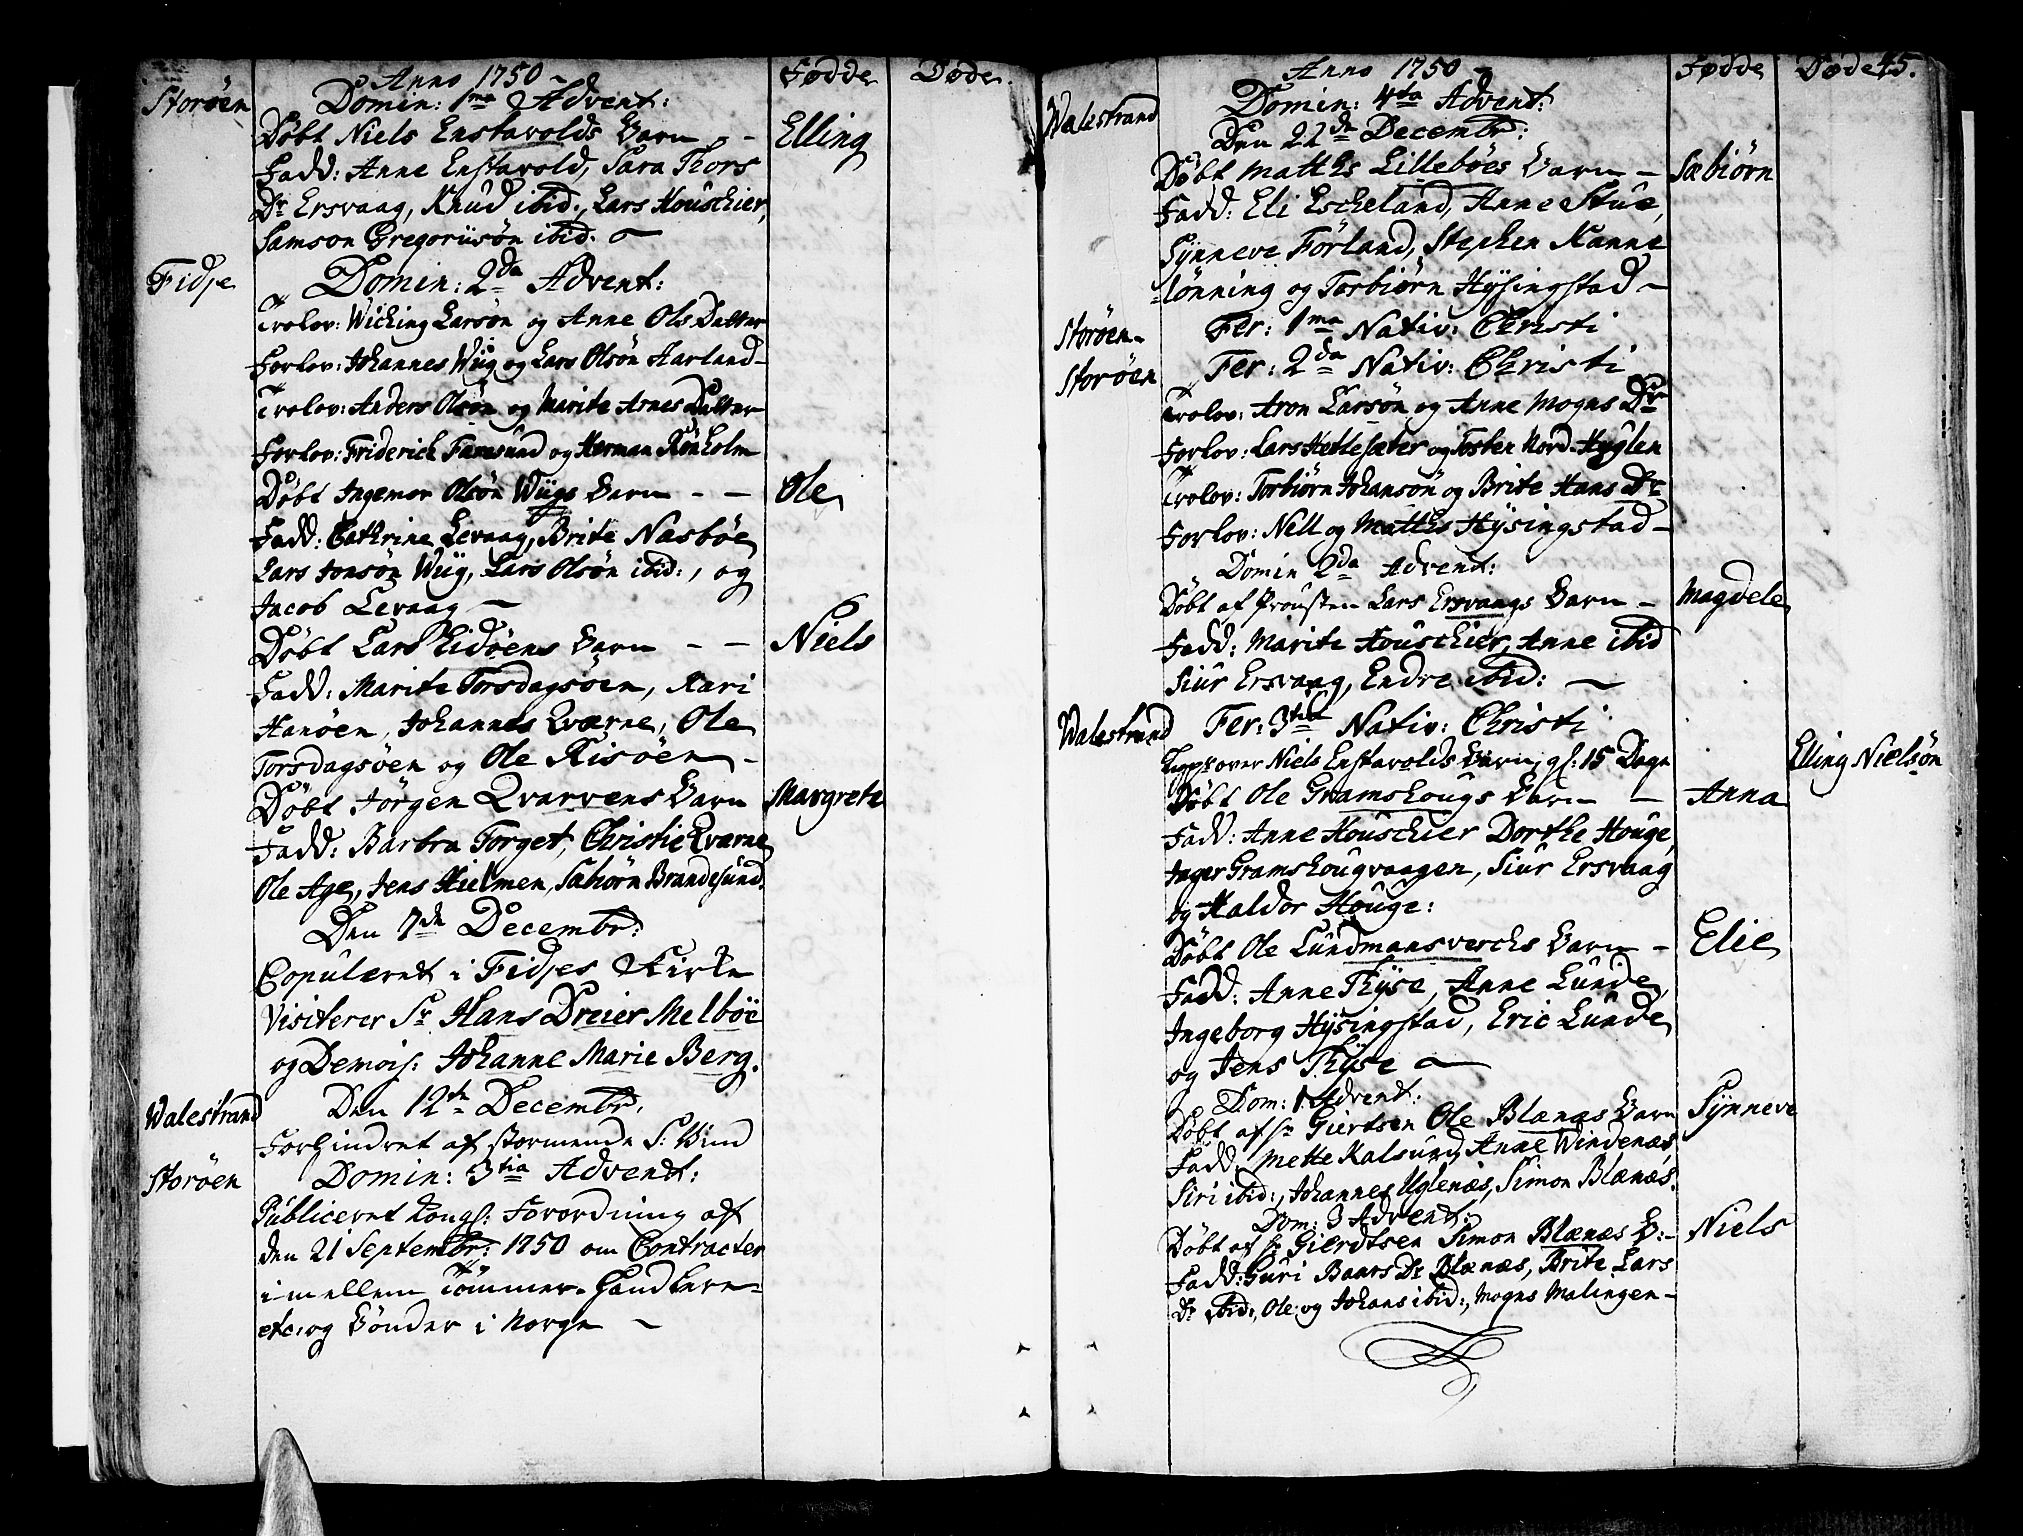 Anno 1750
Fødde
Døde
Storøen
Domin: 1ma Advent:
Døbt Niels Enstavolds Barn - -
Elling
Fadd: Anne Enstavold, Sara Thors
Dr Ersvaag, Knud ibid., Lars Houschier,
Samson Gregoriisøn ibid. -
Fidje
Domin: 2da Advent:
Trolov: Wiching Larsøn og Anne Ols Datter
Forlov: Johannes Wiig og Lars Olsøn Aarland-
Trolov: Anders Olsøn og Marite Arnes Datter
Forlov: Friderich Famesund og Herman Rønholm
Døbt Ingemor Olsøn Wiigs Barn - -
Ole
Fadd: Cathrine Levaag, Brite Næsbøe
Lars Jonsøn Wiig, Lars Olsøn ibid:, og
Jacob Levaag -
Døbt Lars Eidøens Barn - -
Niels
Fadd: Marite Torsdagsøen, Kari
Hanøen, Johannes Qværne, Ole
Torsdagsøen og Ole Risøen -
Døbt Jørgen Qvarvens Barn
Margrete
Fadd: Barbra Torget, Christie Qværne
Ole Age, Jens Hielmen, Sæbiørn Brandesund.
Den 7de Decembr:
Copuleret i Fidjes Kirke
Visiterer Sr Hans Dreier Melbøe
og Demois: Johanne Marie Berg.
Walestrand
Den 12te Decembr.
Forhindret af stormende S: Vind
Storøen
Domin: 3tia Advent:
Publiceret Kongl: Forordning af
den 21 Septembr: 1750 om Contracter
imellem Tømmer-Handlere
etc: og Bønder i Norge -
Anno 1750 -
Fødde
Døde
45.
Walestrand
Domin: 4ta Advent:
Den 22de Decembr:
Døbt Matths Lillebøes Barn -
Sæbiørn
Fadd: Eli Escheland, Anne Stue,
Synneve Førland, Stephen Nanne
-lønning og Torbiørn Hysingstad -
Storøen-
Fer: 1ma Nativ: Christi
Storøen
Fer: 2da Nativ: Christi
Trolov: Aron Larsøn og Anne Mogns Dr
Forlov: Lars Hettesæter og Tosten Nord-Hyglen
Trolov: Torbiørn Johansøn og Brite Hans Dr
Forlov: Nell og Matths Hysingstad -
Domin 2da Advent:
Døbt af Prousten Lars Ersvaags Barn -
Magdele
Fadd: Marite Houschier, Anne ibid
Siur Ersvaag, Endre ibid: -
Walestrand
Fer: 3tia Nativ: Christi
over Niels Enstavolds Barn, gl: 15 Dage
Elling Nielsøn
Døbt Ole Gramshougs Barn -
Anna
Fadd: Anne Houschier Dorthe Houge,
Inger Gramshougvaagen, Siur Ersvaag
og Haldor Houge:
Døbt Ole Lundmansverchs Barn -
Elie
Fadd: Anne Thyse, Anne Lunde,
Ingeborg Hysingstad, Eric Lunde
og Jens Thyse -
Dom: 1 Advent:
Døbt af Hr Giertsen Ole Blænæs Barn
Synneve
Fadd. Mette Kalsund, Anne Windenæs,
Siri ibid:, Johannes Uglenæs, Simon Blænæs.
Dom: 3 Advent:
Døbt af Hr Gierdtsen Simon Blænæs B: -
Niels
Fadd: Guri Baars Dr Blænæs, Brite Lars
Dr ibid:, Ole og Johans ibid:, Mogns Malingen -